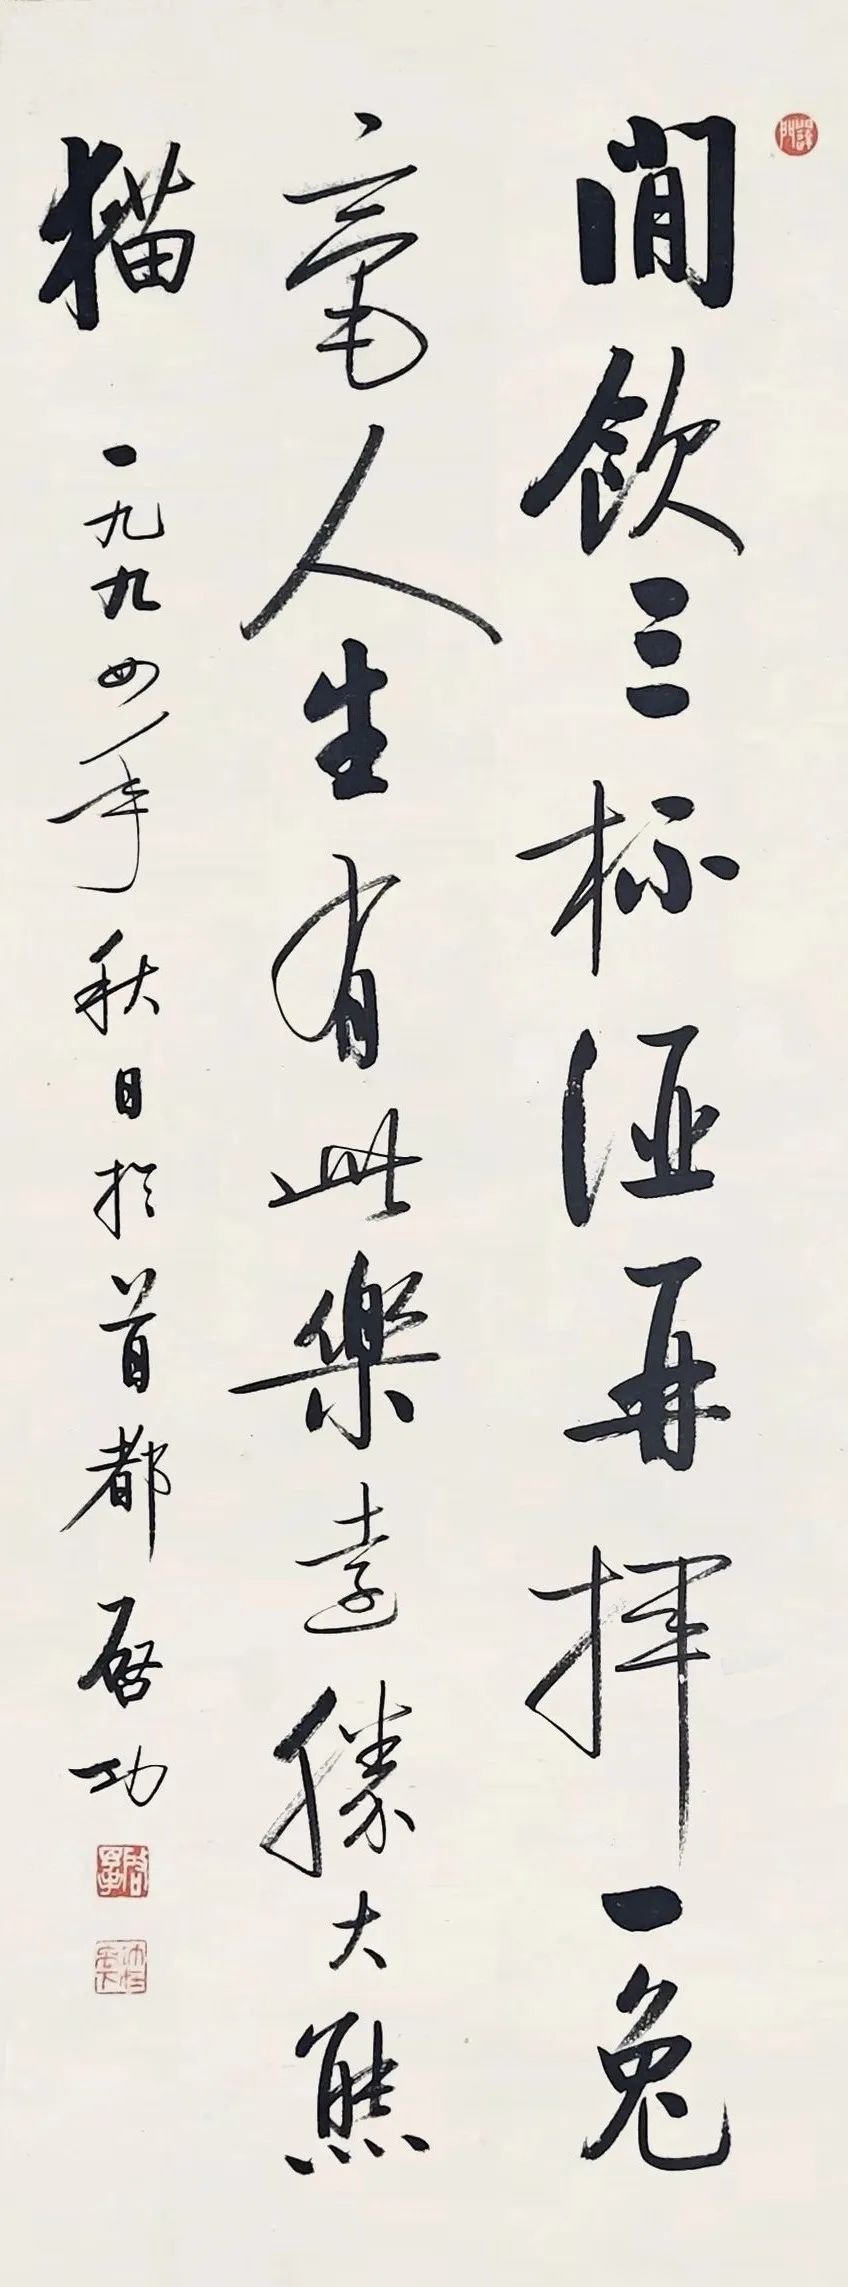 閒飲三杯酒再揮一兔
毫人生有此樂遠勝大熊
猫 一九九四年秋日於首都 啓功